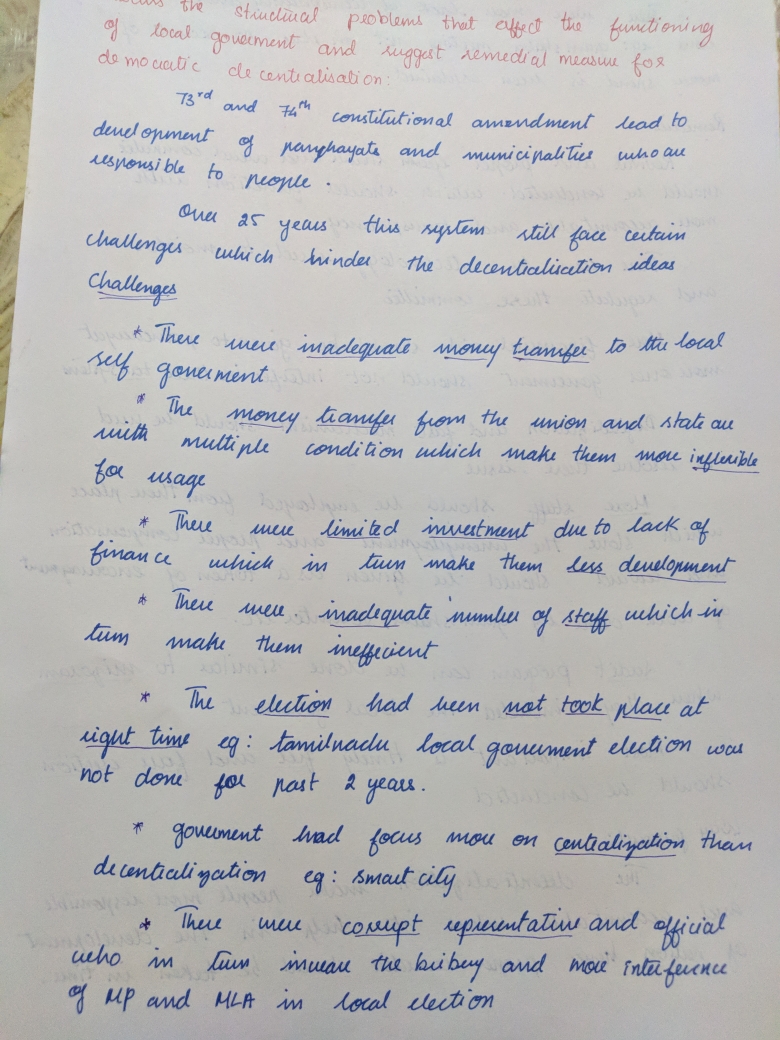 the structural problems that affect the functioning
of local government and suggest remedial measure for
democratic decentralisation:
73rd and 74th constitutional amendment lead to
development of panchayats and municipalities who are
responsible to people.
Over 25 years this system still face certain
challenges which hinder the decentralisation ideas
Challenges
* There were inadequate money transfer to the local
self goverment
* The money transfer from the union and state are
with multiple condition which make them more inflexible
for usage
* There were limited investment due to lack of
finance which in turn make them less development
* There were inadequate number of staff which in
turn make them inefficient
* The election had been not took place at
right time eg: tamilnadu local goverment election was
not done for past 2 years.
* goverment had focus more on centralization than
decentralization eg: smart city
* There were corrupt representative and official
who in turn increase the bribery and more interference
of MP and MLA in local election